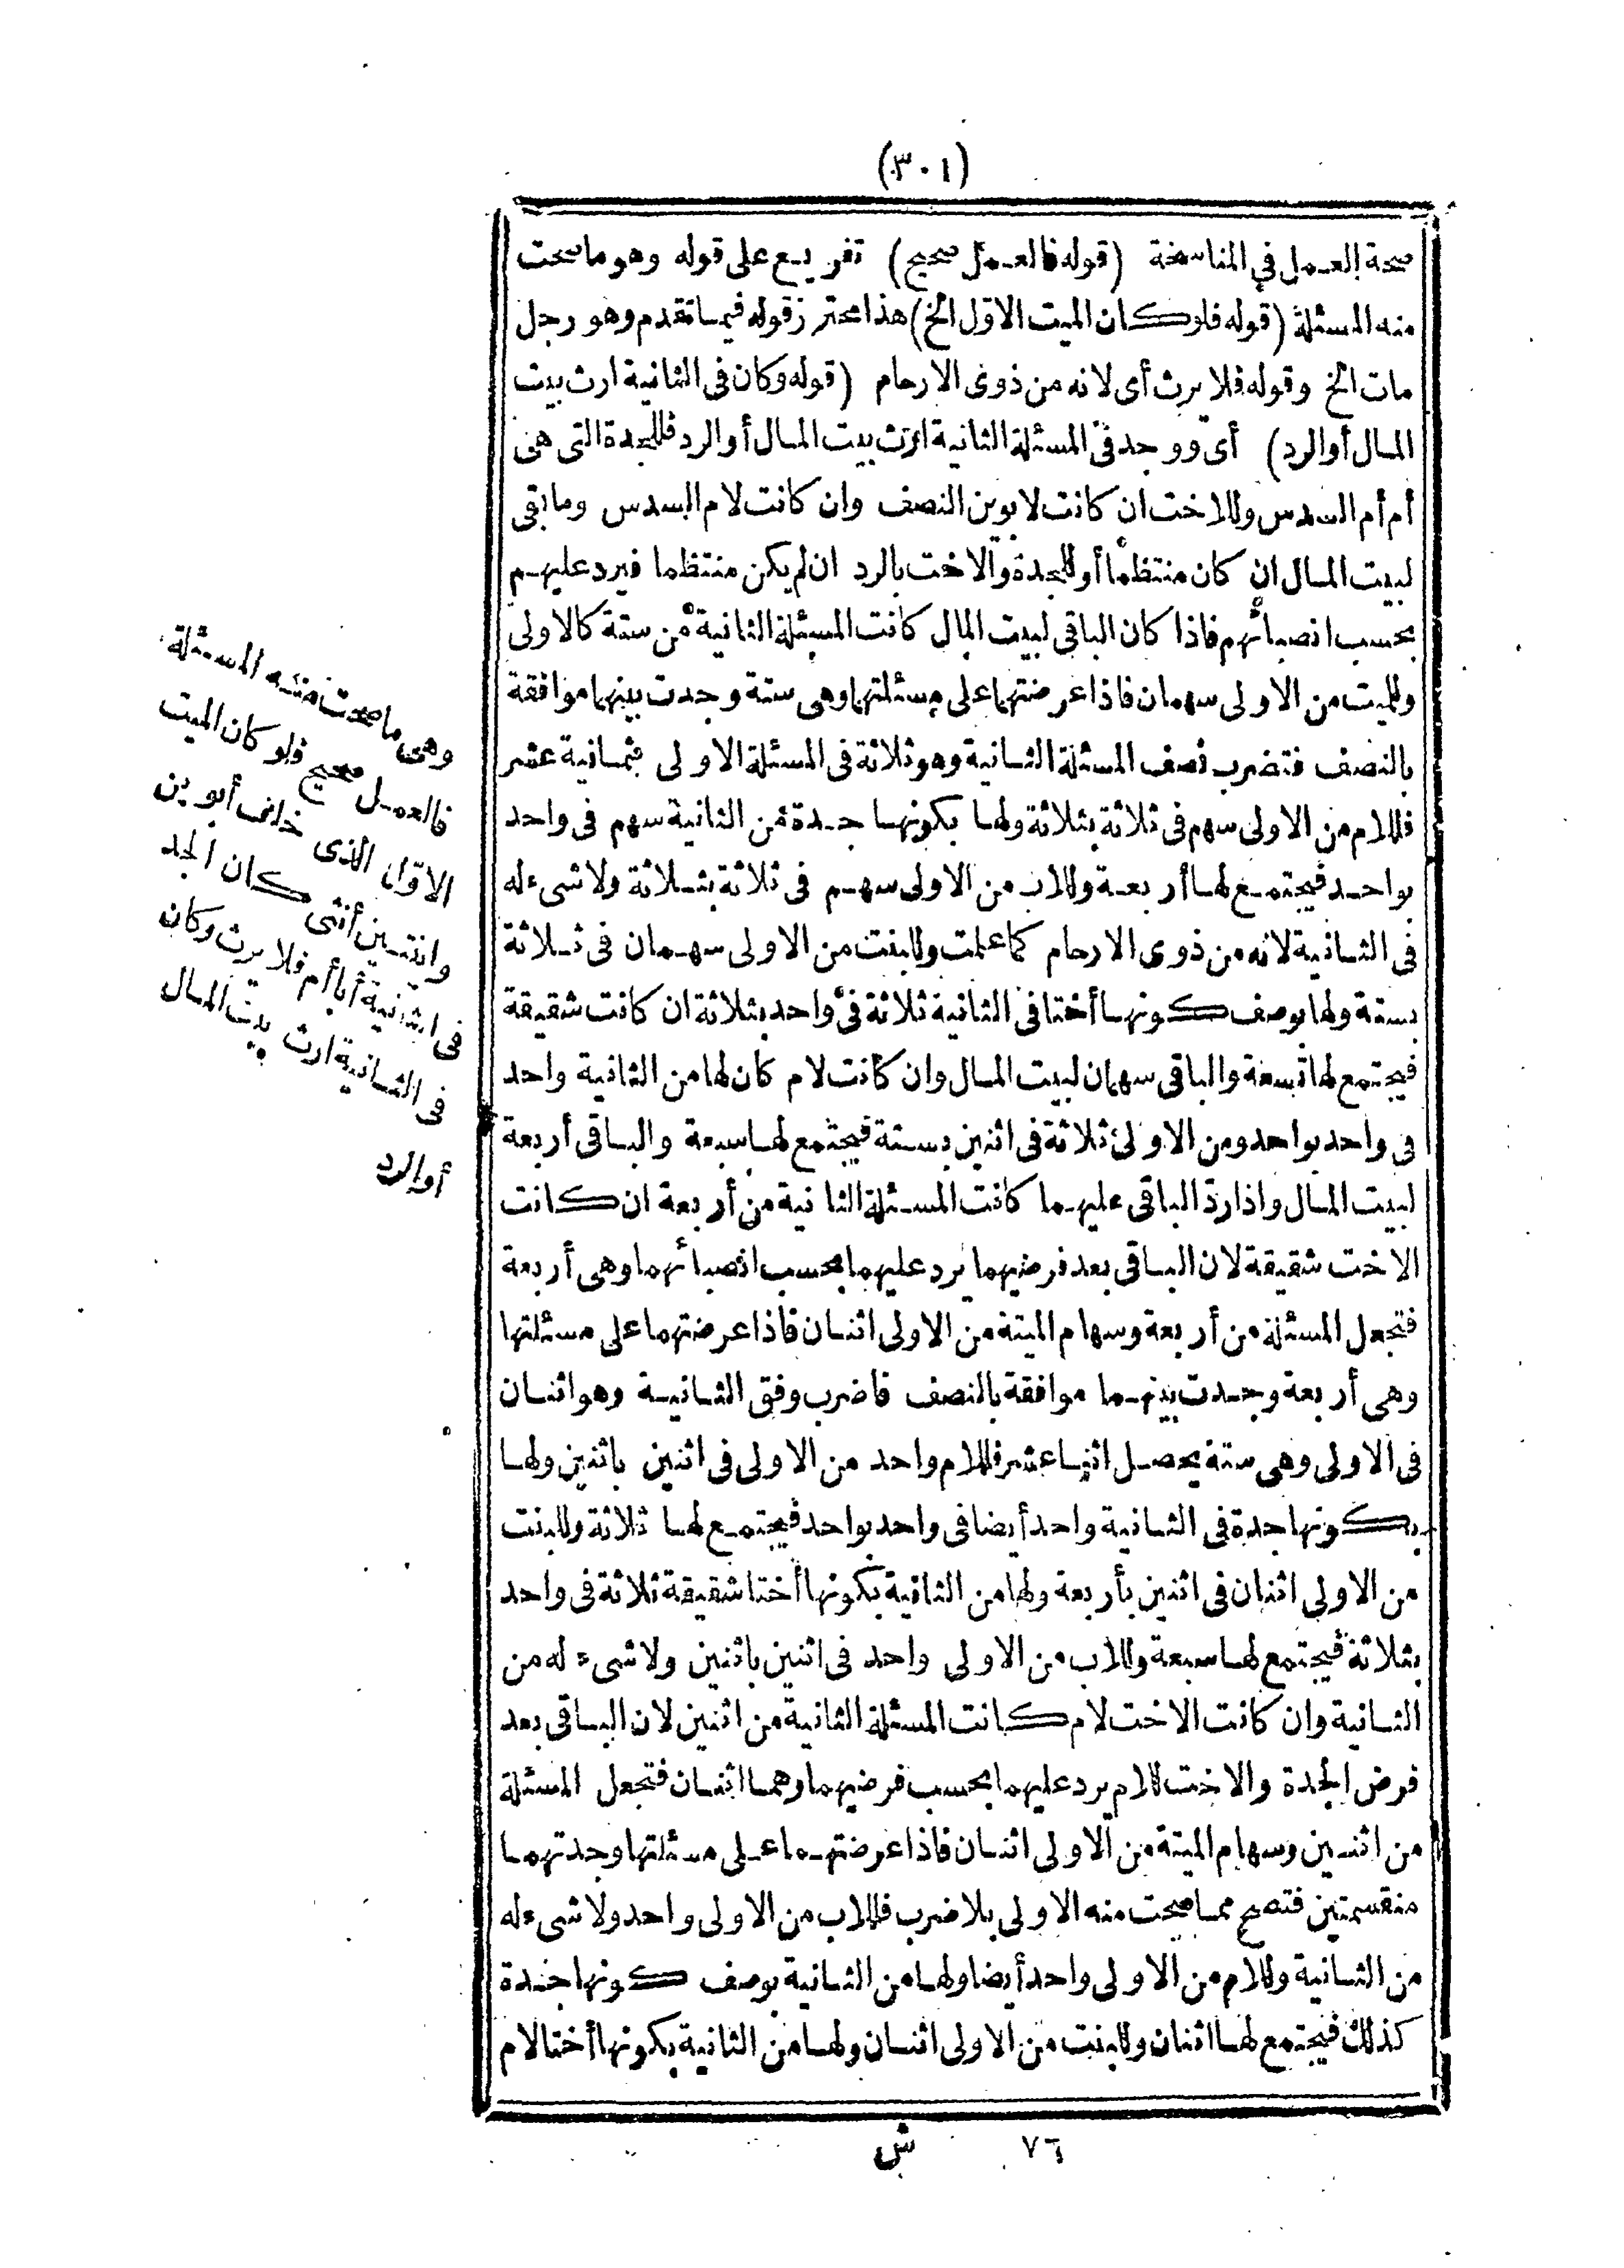 (٣٠١)
صحة العمل في المناسخة (قوله فالعمل صحيح) تفريع على قوله وهو ما صحت
منه المسئلة (قوله فلو كان الميت الاول الخ) هذا محترز قوله فيما تقدم وهو رجل
مات الخ وقوله فلا يرث أى لانه من ذوى الارحام (قوله وكان فى الثانية ارث بيت
المال أوالرد) أى ووجد فى المسئلة الثانية ارث بيت المال أوالرد فللجدة التى هى
أم أم السدس وللاخت ان كانت لابوين النصف وان كانت لام السدس وما بقى
لبيت المال ان كان منتظما أو للجدة والاخت بالرد ان لم يكن منتظما فيرد عليهم
بحسب انصبائهم فاذا كان الباقى لبيت المال كانت المسئلة الثانية من ستة كالاولى
وللميت من الاولى سهمان فاذا عرضتهما على مسئلتها وهى ستة وجدت بينهما موافقة
بالنصف فتضرب نصف المسئلة الثانية وهو ثلاثة فى المسئلة الاولى بثمانية عشر
فللام من الاولى سهم فى ثلاثة بثلاثة ولها بكونها جدة من الثانية سهم فى واحد
بواحد فيجتمع لها أربعة وللاب من الاولى سهم فى ثلاثة بثلاثة ولا شىء له
فى الثانية لانه من ذوى الارحام كما علمت وللبنت من الاولى سهمان فى ثلاثة
بستة ولها بوصف كونها أختا فى الثانية ثلاثة فى واحد بثلاثة ان كانت شقيقة
فيجتمع لها تسعة والباقى سهمان لبيت المال وان كانت لام كان لها من الثانية واحد
فى واحد بواحد ومن الاولى ثلاثة فى اثنين بستة فيجتمع لها سبعة والباقى أربعة
لبيت المال واذا ردّ الباقى عليهما كانت المسئلة الثانية من أربعة ان كانت
الاخت شقيقة لان الباقى بعد فرضيهما يرد عليهما بحسب انصبائهما وهى أربعة
فتجعل المسئلة من أربعة وسهام الميتة من الاولى اثنان فاذا عرضتهما على مسئلتها
وهى أربعة وجدت بينهما موافقة بالنصف فاضرب وفق الثانية وهو اثنان
فى الاولى وهى ستة يحصل اثنا عشر فللام واحد من الاولى فى اثنين باثنين ولها
بكونها جدة فى الثانية واحد أيضا فى واحد بواحد فيجتمع لها ثلاثة وللبنت
من الاولى اثنان فى اثنين بأربعة ولها من الثانية بكونها أختا شقيقة ثلاثة فى واحد
بثلاثة فيجتمع لها سبعة وللاب من الاولى واحد فى اثنين باثنين ولا شىء له من
الثانية وان كانت الاخت لام كانت المسئلة الثانية من اثنين لان الباقى بعد
فرض الجدة والاخت للام يرد عليهما بحسب فرضيهما وهما اثنان فتجعل المسئلة
من اثنين وسهام الميتة من الاولى اثنان فاذا عرضتهما على مسئلتها وجدتهما
منقسمتين فتصح مما صحت منه الاولى بلا ضرب فللاب من الاولى واحد ولا شىء له
من الثانية وللام من الاولى واحد أيضا ولها من الثانية بوصف كونها جدة
كذلك فيجتمع لها اثنان وللبنت من الاولى اثنان ولها من الثانية بكونها أختا لام
وهى ما صحت منه المسئلة
فالعمل صحيح فلو كان الميت
الاول الذى خلف أبوين
وابنتين أنثى كان الجد
فى الثانية أبا أم فلا يرث وكان
فى الثانية ارث بيت المال
أوالرد
٧٦ ش